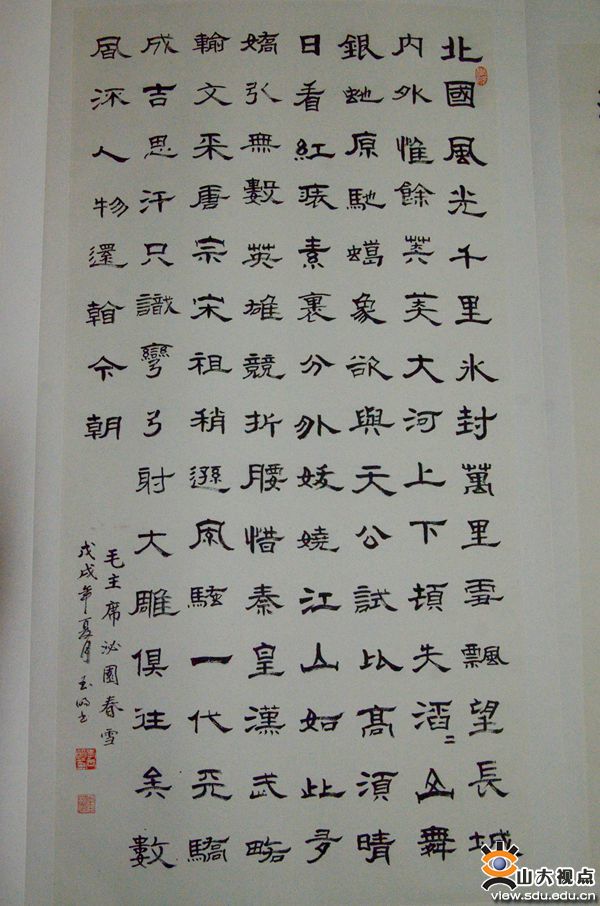 北國風光千里氷封萬里雪飄望長城
内外惟餘莽莽大河上下頓失滔二山舞
銀虵原馳蠟象欲與天公試比高須晴
日看紅裝素裹分外妖嬈江山如此多
嬌引無數英雄競折腰惜秦皇漢武略
輸文采唐宗宋祖稍遜風騷一代天驕
成吉思汗只識彎弓射大雕俱往矣數
風流人物還看今朝
毛主席泌園春雪
戊戌年夏月玉明书
山大视点
view.sdu.edu.cn